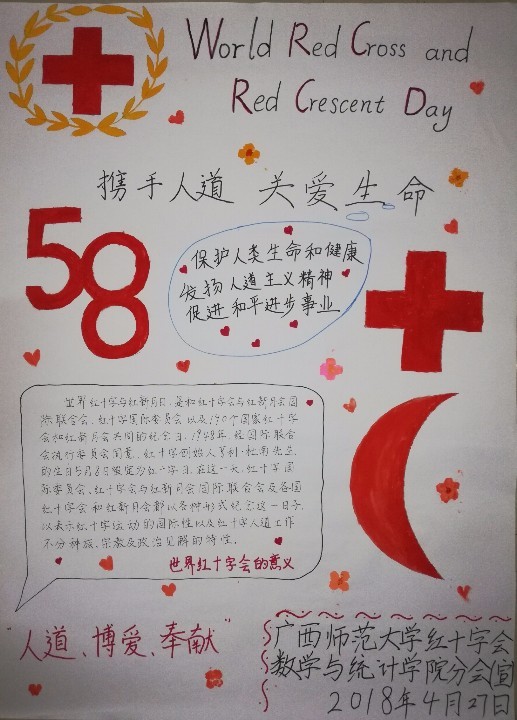 World Red Cross and
Red Crescent Day
携手人道 关爱生命
58
保护人类生命和健康
发扬人道主义精神
促进和平进步事业
世界红十字与红新月日,是和红十字会与红新月会国
际联合会、红十字国际委员会以及190个国家红十字
会和红新月会共同的纪念日。1948年,经国际联合
会执行委员会同意,红十字创始人亨利·杜南先生
的生日5月8日被定为红十字日。在这一天,红十字国
际委员会、红十字会与红新月会国际联合会及各国
红十字会和红新月会都以各种形式纪念这一日子,
以表示红十字运动的国际性以及红十字人道工作
不分种族、宗教及政治见解的特性。
世界红十字会的意义
"人道、博爱、奉献"
广西师范大学红十字会
数学与统计学院分会(宣)
2018年4月27日